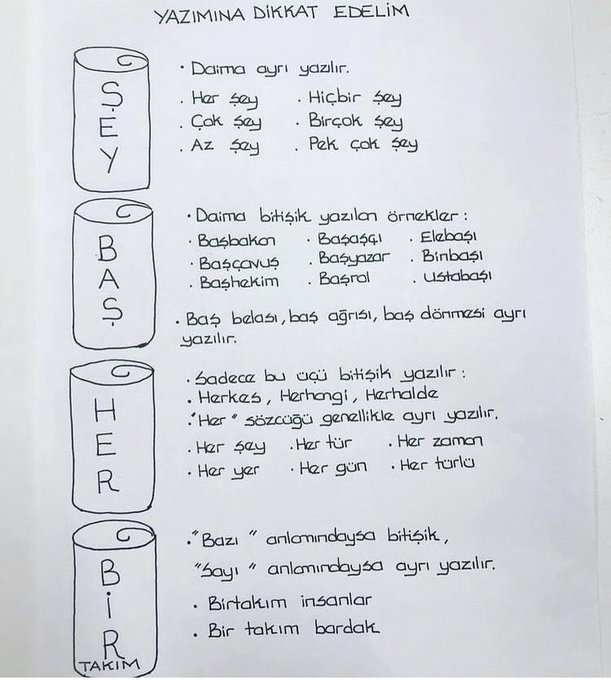 YAZIMINA DİKKAT EDELİM
ŞEY
• Daima ayrı yazılır.
. Her şey . Hiçbir şey
. Çok şey . Birçok şey
. Az şey . Pek çok şey
BAŞ
• Daima bitişik yazılan örnekler :
. Başbakan . Başaşçı . Elebaşı
. Başçavuş . Başyazar . Binbaşı
. Başhekim . Başrol . Ustabaşı
. Baş belası, baş ağrısı, baş dönmesi ayrı
yazılır.
HER
. Sadece bu üçü bitişik yazılır :
. Herkes, Herhangi, Herhalde
."Her" sözcüğü genellikle ayrı yazılır.
. Her şey . Her tür . Her zaman
. Her yer . Her gün . Her türlü
BİR
TAKIM
."Bazı" anlamındaysa bitişik,
"Sayı" anlamındaysa ayrı yazılır.
. Birtakım insanlar
. Bir takım bardak